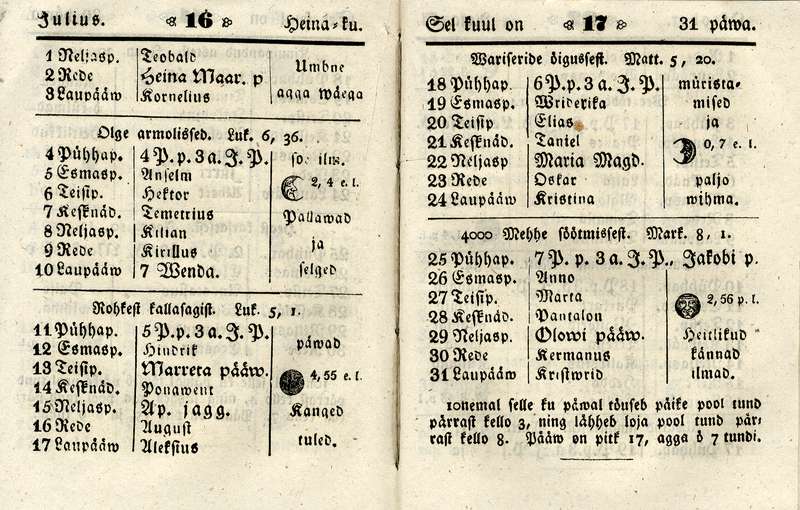 Julius. 16 Heina-ku.
1 Neljasp. Teobald Umbne
2 Rede Heina Maar. p
3 Laupääw Kornelius agga wäega
Olge armolissed. Luk. 6, 36.
4 Pühhap. 4 P. p. 3 a. J. P. soe ilm.
5 Esmasp. Anselm 2, 4 e. l.
6 Teisip. Hektor
7 Kesknäd. Temetrius Pallawad
8 Neljasp. Kilian
9 Rede Kirillus ja
10 Laupääw 7 Wenda. selged
Rohkest kallasagist. Luk. 5, 1.
11 Pühhap. 5 P. p. 3 a. J. P. päwad
12 Esmasp. Hindrik
13 Teisip. Marreta pääw. 4, 55 e. l.
14 Kesknäd. Ponawent
15 Neljasp. Ap. jagg. Kanged
16 Rede August
17 Laupääw Aleksius tuled.
Sel kuul on 17 31 päwa.
Wariseride õigussest. Matt. 5, 20.
18 Pühhap. 6 P. p. 3 a. J. P. mürista-
19 Esmasp. Wriderika mised
20 Teisip Elias ja
21 Kesknäd. Taniel 0, 7 e. l.
22 Neljasp Maria Magd.
23 Rede Oskar paljo
24 Laupääw Kristina wihma.
4000 Mehhe söötmissest. Mark. 8, 1.
25 Pühhap. 7 P. p. 3 a. J. P., Jakobi p.
26 Esmasp. Anno
27 Teisip. Marta 2, 56 p. l.
28 Kesknäd. Pantalon
29 Neljasp. Olowi pääw. Heitlikud
30 Rede Kermanus kännad
31 Laupääw Kristwrid ilmad.
10nemal selle ku päwal töuseb päike pool tund
pärrast kello 3, ning lähheb loja pool tund pär-
rast kello 8. Pääw on pitk 17, agga ö 7 tundi.